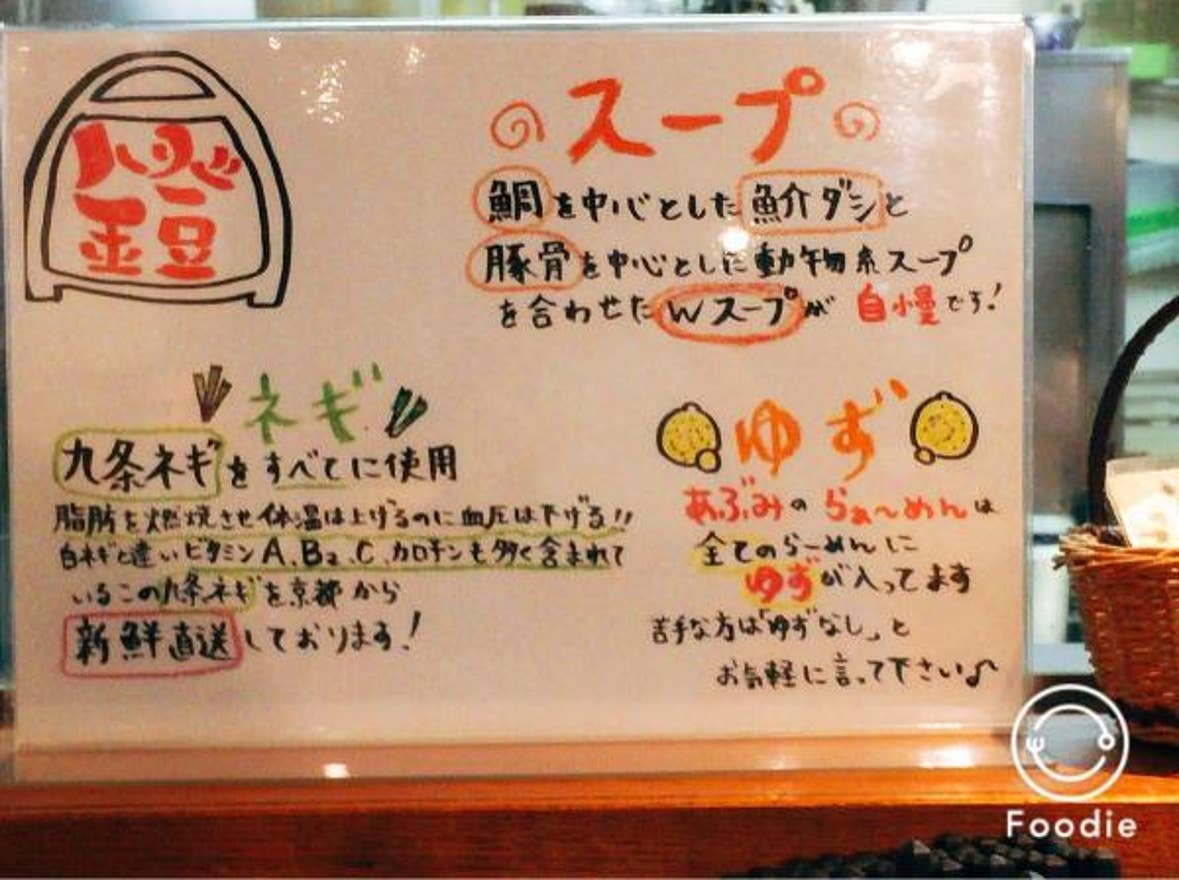 スープ
鯛を中心とした魚介ダシと
豚骨を中心とした動物系スープ
を合わせたWスープが自慢です!
ネギ
九条ネギをすべてに使用
脂肪を燃焼させ体温は上げるのに血圧は下げる!!
白ネギと違いビタミンA、B2、C、カロチンも多く含まれて
いるこの九条ネギを京都から
新鮮直送しております!
ゆず
あぶみのらぁ〜めんは
全てのらーめんに
ゆずが入ってます
苦手な方は「ゆずなし」と
お気軽に言って下さい♪
Foodie